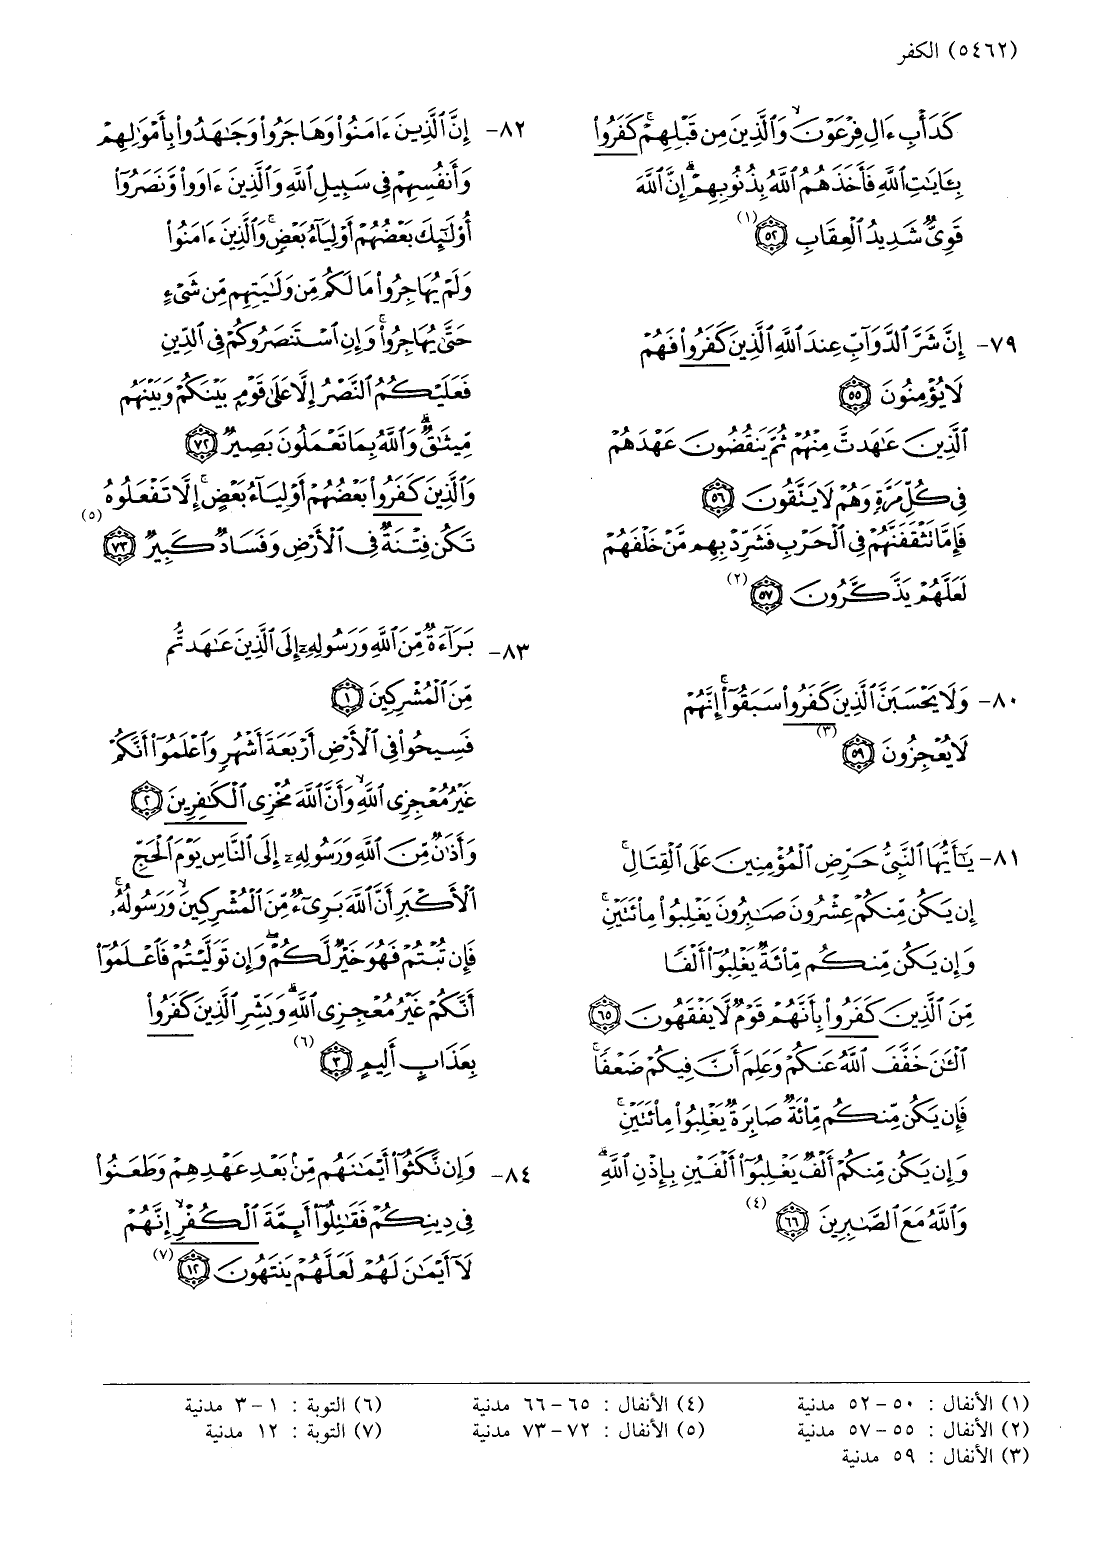 (٥٤٦٢) الكفر
كَدَأْبِ ءَالِ فِرْعَوْنَ ۙ وَٱلَّذِينَ مِن قَبْلِهِمْ ۚ كَفَرُوا۟
بِـَٔايَـٰتِ ٱللَّهِ فَأَخَذَهُمُ ٱللَّهُ بِذُنُوبِهِمْ ۗ إِنَّ ٱللَّهَ
قَوِىٌّ شَدِيدُ ٱلْعِقَابِ ۝٥٢ (١)
٧٩- إِنَّ شَرَّ ٱلدَّوَآبِّ عِندَ ٱللَّهِ ٱلَّذِينَ كَفَرُوا۟ فَهُمْ
لَا يُؤْمِنُونَ ۝٥٥
ٱلَّذِينَ عَـٰهَدتَّ مِنْهُمْ ثُمَّ يَنقُضُونَ عَهْدَهُمْ
فِى كُلِّ مَرَّةٍ وَهُمْ لَا يَتَّقُونَ ۝٥٦
فَإِمَّا تَثْقَفَنَّهُمْ فِى ٱلْحَرْبِ فَشَرِّدْ بِهِم مَّنْ خَلْفَهُمْ
لَعَلَّهُمْ يَذَّكَّرُونَ ۝٥٧ (٢)
٨٠- وَلَا يَحْسَبَنَّ ٱلَّذِينَ كَفَرُوا۟ سَبَقُوٓا۟ ۚ إِنَّهُمْ
لَا يُعْجِزُونَ ۝٥٩ (٣)
٨١- يَـٰٓأَيُّهَا ٱلنَّبِىُّ حَرِّضِ ٱلْمُؤْمِنِينَ عَلَى ٱلْقِتَالِ ۚ
إِن يَكُن مِّنكُمْ عِشْرُونَ صَـٰبِرُونَ يَغْلِبُوا۟ مِا۟ئَتَيْنِ ۚ
وَإِن يَكُن مِّنكُم مِّا۟ئَةٌ يَغْلِبُوٓا۟ أَلْفًا
مِّنَ ٱلَّذِينَ كَفَرُوا۟ بِأَنَّهُمْ قَوْمٌ لَّا يَفْقَهُونَ ۝٦٥
ٱلْـَٔـٰنَ خَفَّفَ ٱللَّهُ عَنكُمْ وَعَلِمَ أَنَّ فِيكُمْ ضَعْفًا ۚ
فَإِن يَكُن مِّنكُم مِّا۟ئَةٌ صَابِرَةٌ يَغْلِبُوا۟ مِا۟ئَتَيْنِ ۚ
وَإِن يَكُن مِّنكُمْ أَلْفٌ يَغْلِبُوٓا۟ أَلْفَيْنِ بِإِذْنِ ٱللَّهِ ۗ
وَٱللَّهُ مَعَ ٱلصَّـٰبِرِينَ ۝٦٦ (٤)
٨٢- إِنَّ ٱلَّذِينَ ءَامَنُوا۟ وَهَاجَرُوا۟ وَجَـٰهَدُوا۟ بِأَمْوَٰلِهِمْ
وَأَنفُسِهِمْ فِى سَبِيلِ ٱللَّهِ وَٱلَّذِينَ ءَاوَوا۟ وَّنَصَرُوٓا۟
أُو۟لَـٰٓئِكَ بَعْضُهُمْ أَوْلِيَآءُ بَعْضٍ ۚ وَٱلَّذِينَ ءَامَنُوا۟
وَلَمْ يُهَاجِرُوا۟ مَا لَكُم مِّن وَلَـٰيَتِهِم مِّن شَىْءٍ
حَتَّىٰ يُهَاجِرُوا۟ ۚ وَإِنِ ٱسْتَنصَرُوكُمْ فِى ٱلدِّينِ
فَعَلَيْكُمُ ٱلنَّصْرُ إِلَّا عَلَىٰ قَوْمٍۭ بَيْنَكُمْ وَبَيْنَهُم
مِّيثَـٰقٌ ۗ وَٱللَّهُ بِمَا تَعْمَلُونَ بَصِيرٌ ۝٧٢
وَٱلَّذِينَ كَفَرُوا۟ بَعْضُهُمْ أَوْلِيَآءُ بَعْضٍ ۚ إِلَّا تَفْعَلُوهُ
تَكُن فِتْنَةٌ فِى ٱلْأَرْضِ وَفَسَادٌ كَبِيرٌ ۝٧٣ (٥)
٨٣- بَرَآءَةٌ مِّنَ ٱللَّهِ وَرَسُولِهِۦٓ إِلَى ٱلَّذِينَ عَـٰهَدتُّم
مِّنَ ٱلْمُشْرِكِينَ ۝١
فَسِيحُوا۟ فِى ٱلْأَرْضِ أَرْبَعَةَ أَشْهُرٍ وَٱعْلَمُوٓا۟ أَنَّكُمْ
غَيْرُ مُعْجِزِى ٱللَّهِ ۙ وَأَنَّ ٱللَّهَ مُخْزِى ٱلْكَـٰفِرِينَ ۝٢
وَأَذَٰنٌ مِّنَ ٱللَّهِ وَرَسُولِهِۦٓ إِلَى ٱلنَّاسِ يَوْمَ ٱلْحَجِّ
ٱلْأَكْبَرِ أَنَّ ٱللَّهَ بَرِىٓءٌ مِّنَ ٱلْمُشْرِكِينَ ۙ وَرَسُولُهُۥ ۚ
فَإِن تُبْتُمْ فَهُوَ خَيْرٌ لَّكُمْ ۖ وَإِن تَوَلَّيْتُمْ فَٱعْلَمُوٓا۟
أَنَّكُمْ غَيْرُ مُعْجِزِى ٱللَّهِ ۗ وَبَشِّرِ ٱلَّذِينَ كَفَرُوا۟
بِعَذَابٍ أَلِيمٍ ۝٣ (٦)
٨٤- وَإِن نَّكَثُوٓا۟ أَيْمَـٰنَهُم مِّنۢ بَعْدِ عَهْدِهِمْ وَطَعَنُوا۟
فِى دِينِكُمْ فَقَـٰتِلُوٓا۟ أَئِمَّةَ ٱلْكُفْرِ ۙ إِنَّهُمْ
لَآ أَيْمَـٰنَ لَهُمْ لَعَلَّهُمْ يَنتَهُونَ ۝١٢ (٧)
(١) الأنفال : ٥٠ - ٥٢ مدنية
(٢) الأنفال : ٥٥ - ٥٧ مدنية
(٣) الأنفال : ٥٩ مدنية
(٤) الأنفال : ٦٥ - ٦٦ مدنية
(٥) الأنفال : ٧٢ - ٧٣ مدنية
(٦) التوبة : ١ - ٣ مدنية
(٧) التوبة : ١٢ مدنية